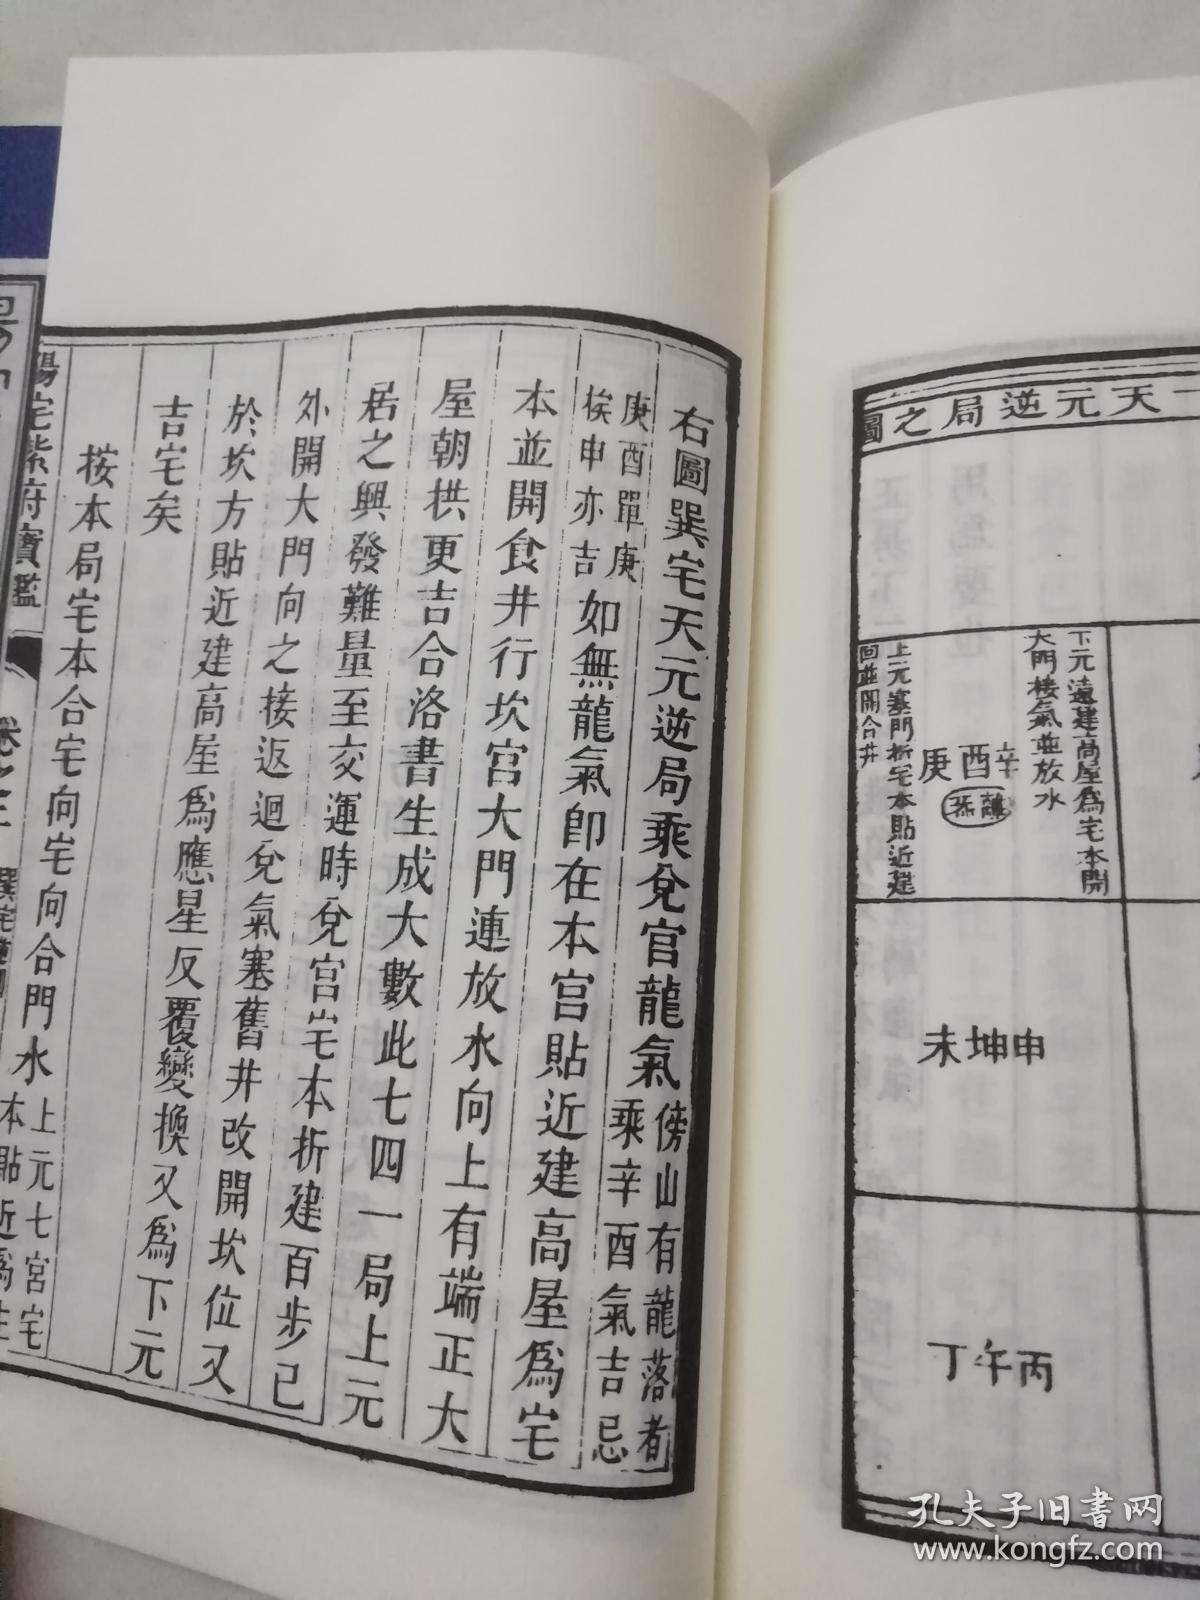 一天元逆局之圖
下元遠建高屋爲宅本開
大門接氣並放水
辛酉庚
上元塞門折宅本貼近建
回並開合井
申坤未
丙午丁
右圖巽宅天元逆局乘兌宮龍氣傍山有龍落者
乘辛酉氣吉忌
庚酉單庚
挨申亦吉如無龍氣即在本宮貼近建高屋爲宅
本並開食井行坎宮大門連放水向上有端正大
屋朝拱更吉合洛書生成大數此七四一局上元
居之興發難量至交運時兌宮宅本折建百步已
外開大門向之接返迴兌氣塞舊井改開坎位又
於坎方貼近建高屋爲應星反覆變換又爲下元
吉宅矣
按本局宅本合宅向宅向合門水上元七宮宅
本貼近爲生
陽宅紫府寶鑑
卷之三
孔夫子旧书网
www.kongfz.com